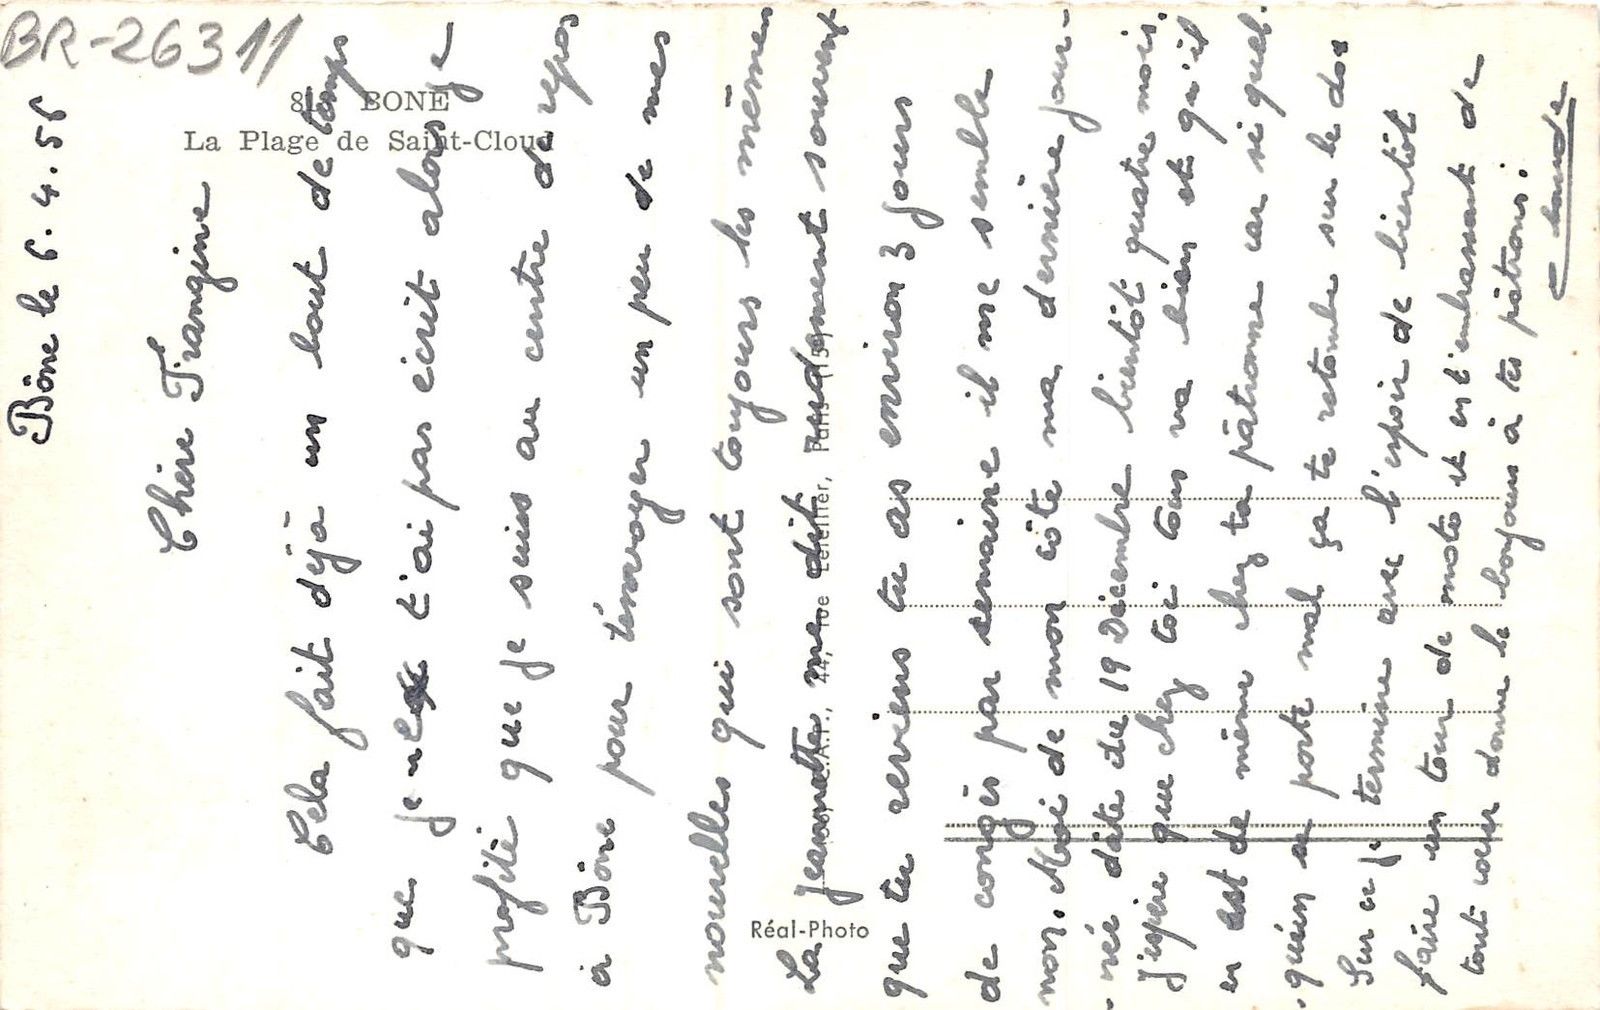 BR-26311
81 BONE
La Plage de Saint-Cloud
Réal-Photo
44, rue Letellier, Paris (15e)
Bône le 6.4.56
Chère Frangine
Cela fait déjà un bout de temps
que je ne t'ai pas écrit alors je
profite que je suis au centre de repos
à Bône pour t'envoyer un peu de mes
nouvelles qui sont toujours les mêmes
La Jeannette me dit
que tu reviens tu as environ 3 jours
de congés par semaine il me semble
non. Moi de mon côté ma dernière jour-
-née date du 19 Décembre bientôt quatre mois.
J'espère que chez toi tous va bien et qu'il
en est de même chez ta pâtronne car si quel-
-qu'un se porte mal ça te retombe sur le dos
Sur ce je termine avec l'espoir de bientôt
faire un tour de moto et en t'embrassant de
tout cœur donne le bonjour à tes pâtrons.
Claude